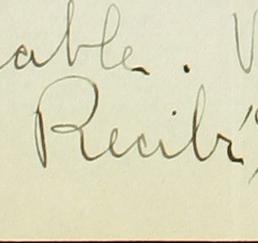 able. V
Recibí